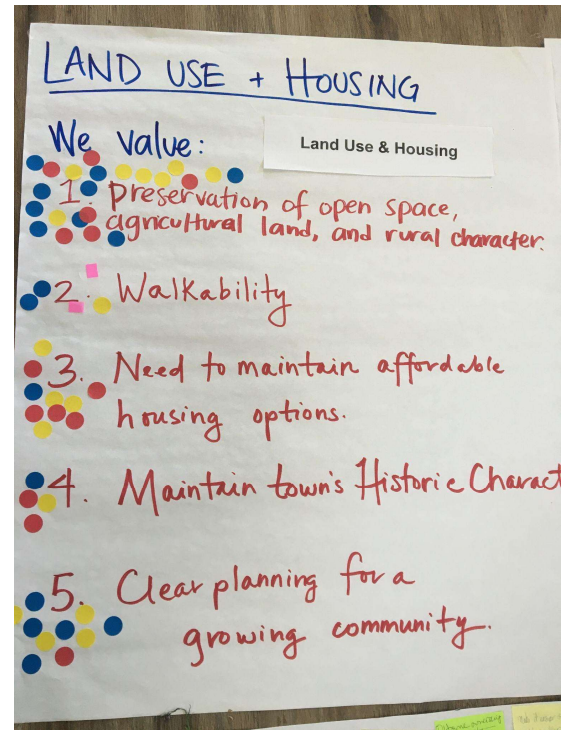 LAND USE + HOUSING
We value:
Land Use & Housing
1. Preservation of open space,
agricultural land, and rural character.
2. Walkability
3. Need to maintain affordable
housing options.
4. Maintain town's Historic Charact
5. Clear planning for a
growing community.